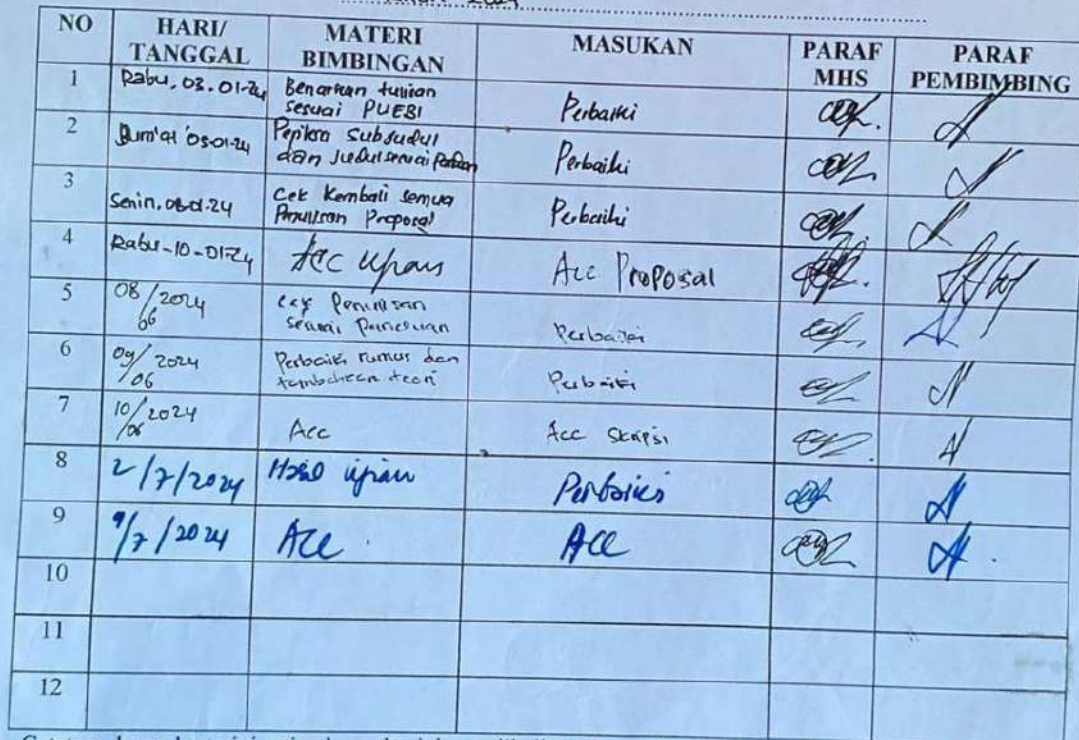 2024
NO HARI/ TANGGAL MATERI BIMBINGAN MASUKAN PARAF MHS PARAF PEMBIMBING
1 Rabu, 03.01-24 Benarkan tulisan sesuai PUEBI Perbaiki
2 Jum'at 05-01-24 Subjudul dan Judul sesuai Perbaiki
3 Senin, 24 Cek Kembali semua Penulisan Proposal Perbaiki
4 Rabu-10-01-24 Acc Ujian Acc Proposal
5 08/06 2024 Penulisan sesuai Panduan Perbaiki
6 09/06 2024 Perbaiki rumus dan teori Perbaiki
7 10/06 2024 Acc Acc Skripsi
8 2/7/2024 Hasil ujian Perbaiki
9 9/7/2024 Acc Acc
10
11
12